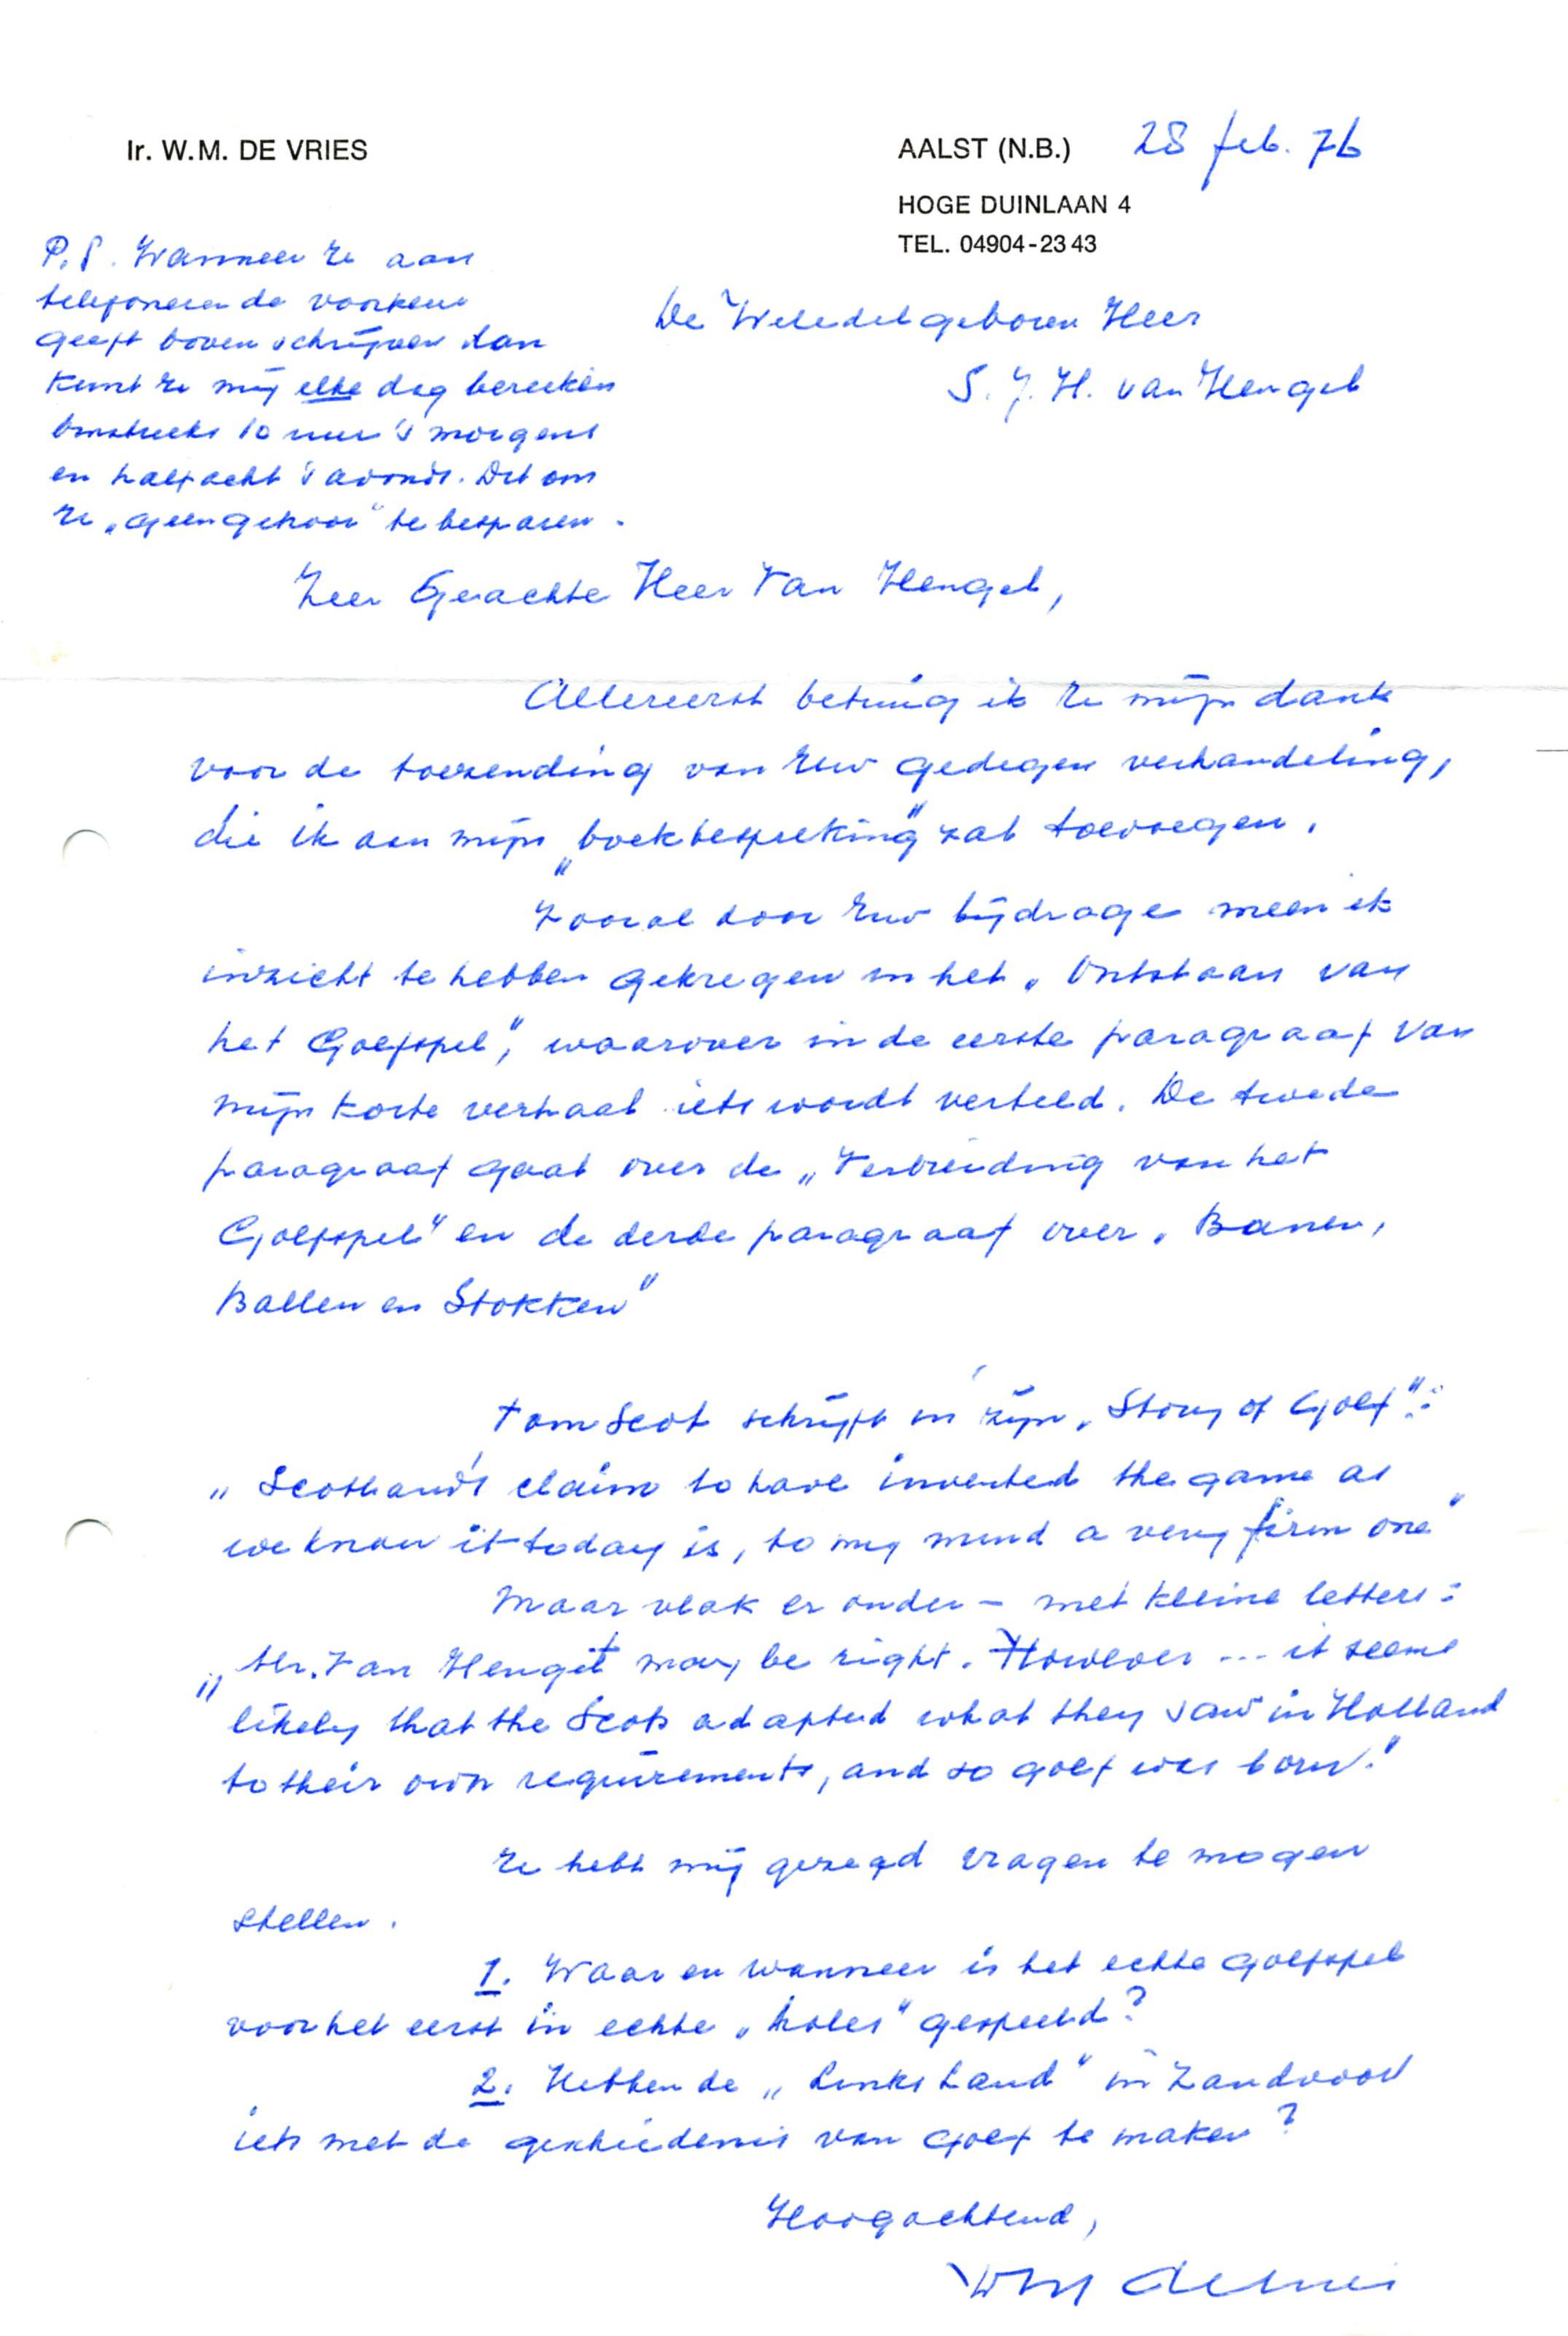 Ir. W.M. DE VRIES
AALST (N.B.) 28 feb. 76
HOGE DUINLAAN 4
TEL. 04904-23 43
P.S. Wanneer U aan
telefoneren de voorkeur
geeft boven schrijven dan
kunt U mij elke dag bereiken
omstreeks 10 uur 's morgens
en half acht 's avonds. Dit om
U „geen gehoor" te besparen.
De Weledelgeboren Heer
S. J. H. van Hengel
Zeer Geachte Heer Van Hengel,
Allereerst betuig ik U mijn dank
voor de toezending van Uw gedegen verhandeling,
die ik aan mijn „boekbespreking" zal toevoegen.
Vooral door Uw bijdrage meen ik
inzicht te hebben gekregen in het „Ontstaan van
het Golfspel", waarover in de eerste paragraaf van
mijn korte verhaal iets wordt verteld. De tweede
paragraaf gaat over de „Verbreiding van het
Golfspel" en de derde paragraaf over „Banen,
Ballen en Stokken"
Tom Scot schrijft in zijn „Story of Golf":
„Scotland's claim to have invented the game as
we know it today is, to my mind a very firm one"
Maar vlak er onder – met kleine letters:
„Mr. Van Hengel may be right. However ... it seems
likely that the Scots adapted what they saw in Holland
to their own requirements, and so golf was born."
U hebt mij gezegd vragen te mogen
stellen.
1. Waar en wanneer is het echte golfspel
voor het eerst in echte „holes" gespeeld?
2. Hebben de „Links Land" in Zandvoort
iets met de geschiedenis van golf te maken?
Hoogachtend,
WM de Vries